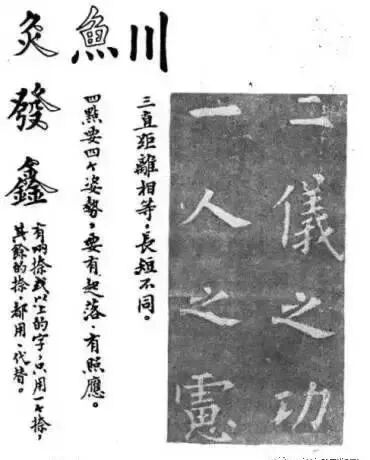 川
三直距離相等，長短不同。
魚
四點要四个姿勢，要有起落、有照應。
灸
發
鑫
有兩捺或以上的字，只用一个捺，
其餘的捺，都用、代替。
二儀之功
一人之慮